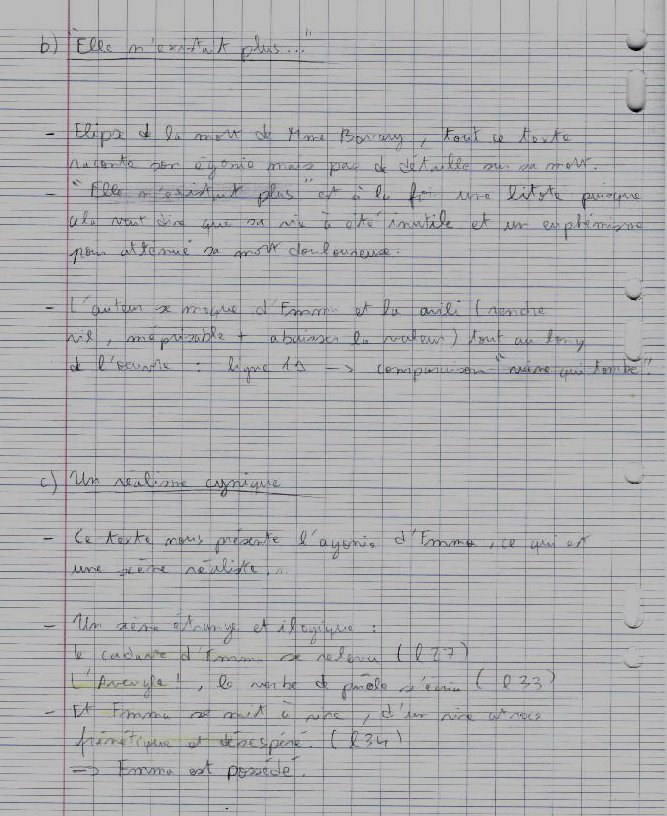 b) "Elle n'existait plus..."
- Elipse de la mort de Mme Bovary, tout ce texte
raconte son égonie mais pas de détaille sur sa mort.
- "Elle n'existait plus" est à la fois une litote puisque
cela veut dire que sa vie à été inutile et un euphémisme
pour atténué sa mort douloureuse.
- L'auteur se moque d'Emma et la avili (rendre
vil, méprisable + abaisser la valeur) tout au long
de l'oeuvre : ligne 11 -> comparaison "ruine qui tombe".
c) Un réalisme cynique
- Ce texte nous présente l'agonie d'Emma, ce qui est
une scène réaliste...
- Un scène étrange et ilogique :
le cadavre d'Emma se releva (l 27)
L'Aveugle!, le verbe de parole s'écria (l 33)
- Et Emma se mit à rire, d'un rire atroce
frénétique et désespéré. (l 34)
=> Emma est possédé.